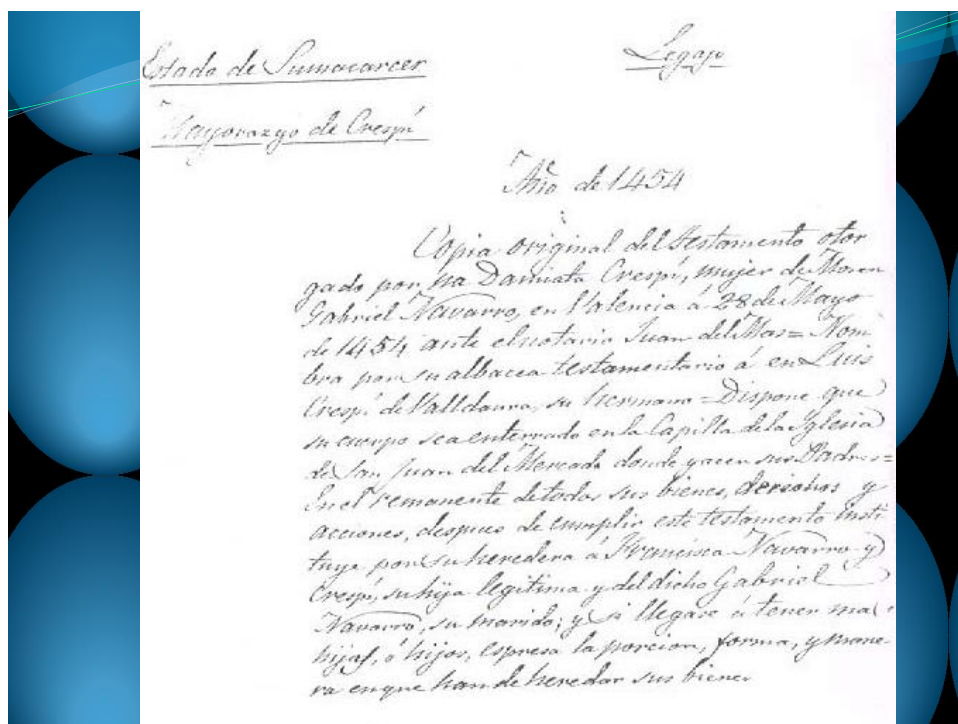 Estado de Sumacarcer
Legajo
Mayorazgo de Crespí
Año de 1454
Copia original del testamento otor
gado por na Damiata Crespí, mujer de Mosen
Gabriel Navarro, en Valencia á 28 de Mayo
de 1454 ante el notario Juan del Mas = Nom
bra por su albacea testamentario á en Luis
Crespí de Valldaura, su hermano = Dispone que
su cuerpo sea enterrado en la Capilla de la Iglesia
de San Juan del Mercado donde yacen sus Padres =
En el remanente de todos sus bienes, derechos y
acciones, despues de cumplir este testamento insti
tuye por su heredera á Francisca Navarro y
Crespí, su hija legitima y del dicho Gabriel
Navarro, su marido; y si llegase á tener mas
hijas, ó hijos, espresa la porcion, forma, y mane-
ra en que han de heredar sus bienes